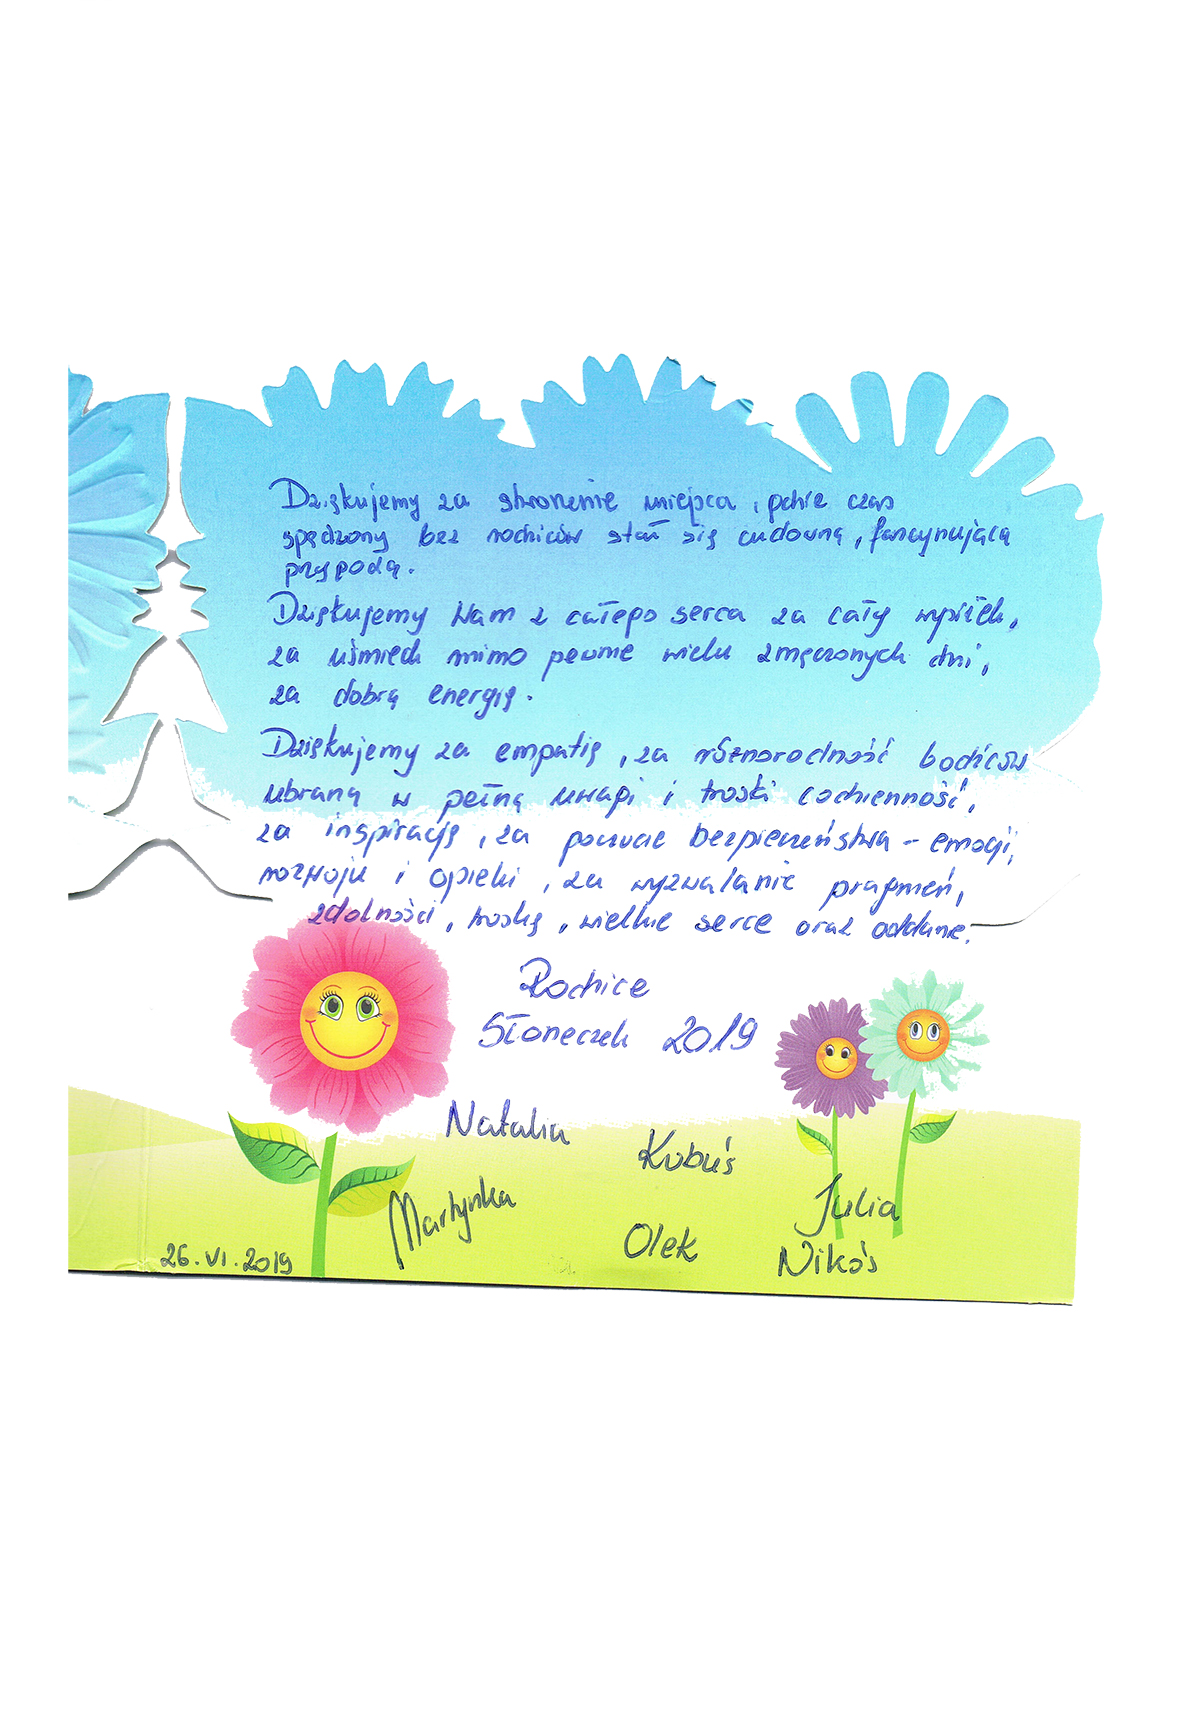 Dziękujemy za stworzenie miejsca, gdzie czas
spędzony bez rodziców stał się cudowną, fascynującą
przygodą.
Dziękujemy Wam z całego serca za cały wysiłek,
za uśmiech mimo pewnie wielu zmęczonych dni,
za dobrą energię.
Dziękujemy za empatię, za różnorodność bodźców
ubraną w pełną uwagi i troski codzienność,
za inspirację, za poczucie bezpieczeństwa - emocji,
rozwoju i opieki, za wyzwalanie pragnień,
zdolności, troskę, wielkie serce oraz oddanie.
Rodzice
Słoneczek 2019
Natalia
Kubuś
Martynka
Julia
Olek
Nikoś
26.VI.2019